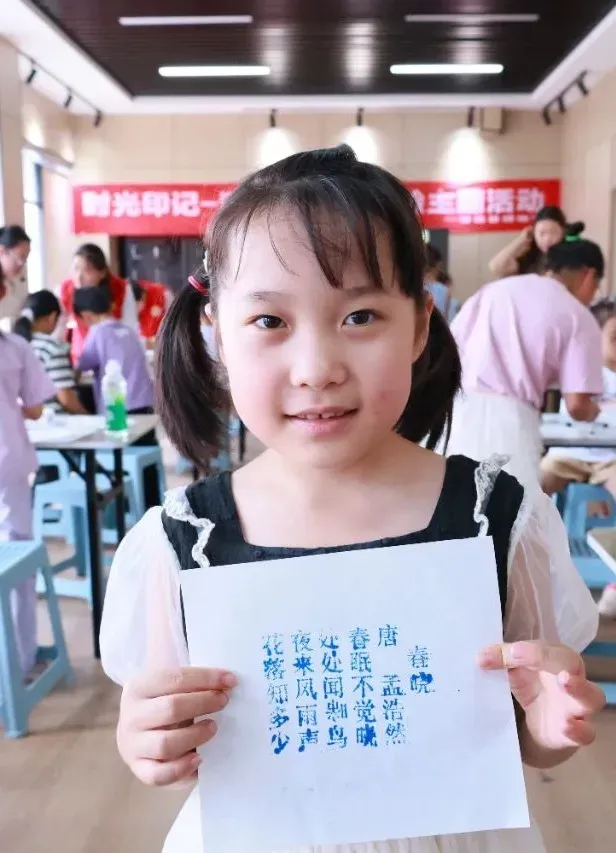 时光印记—
主题活动
春晓
唐 孟浩然
春眠不觉晓
处处闻啼鸟
夜来风雨声
花落知多少